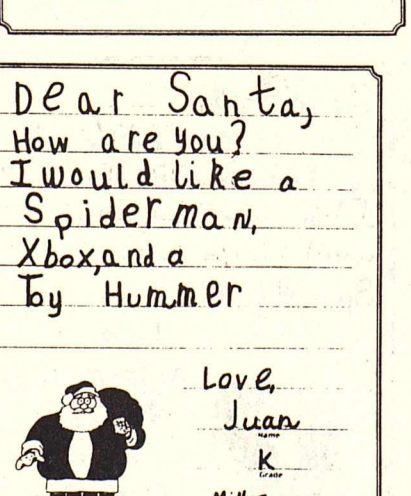 Dear Santa,
How are you?
I would like a
Spiderman,
Xbox, and a
Toy Hummer
Love,
Juan
Name
K
Grade